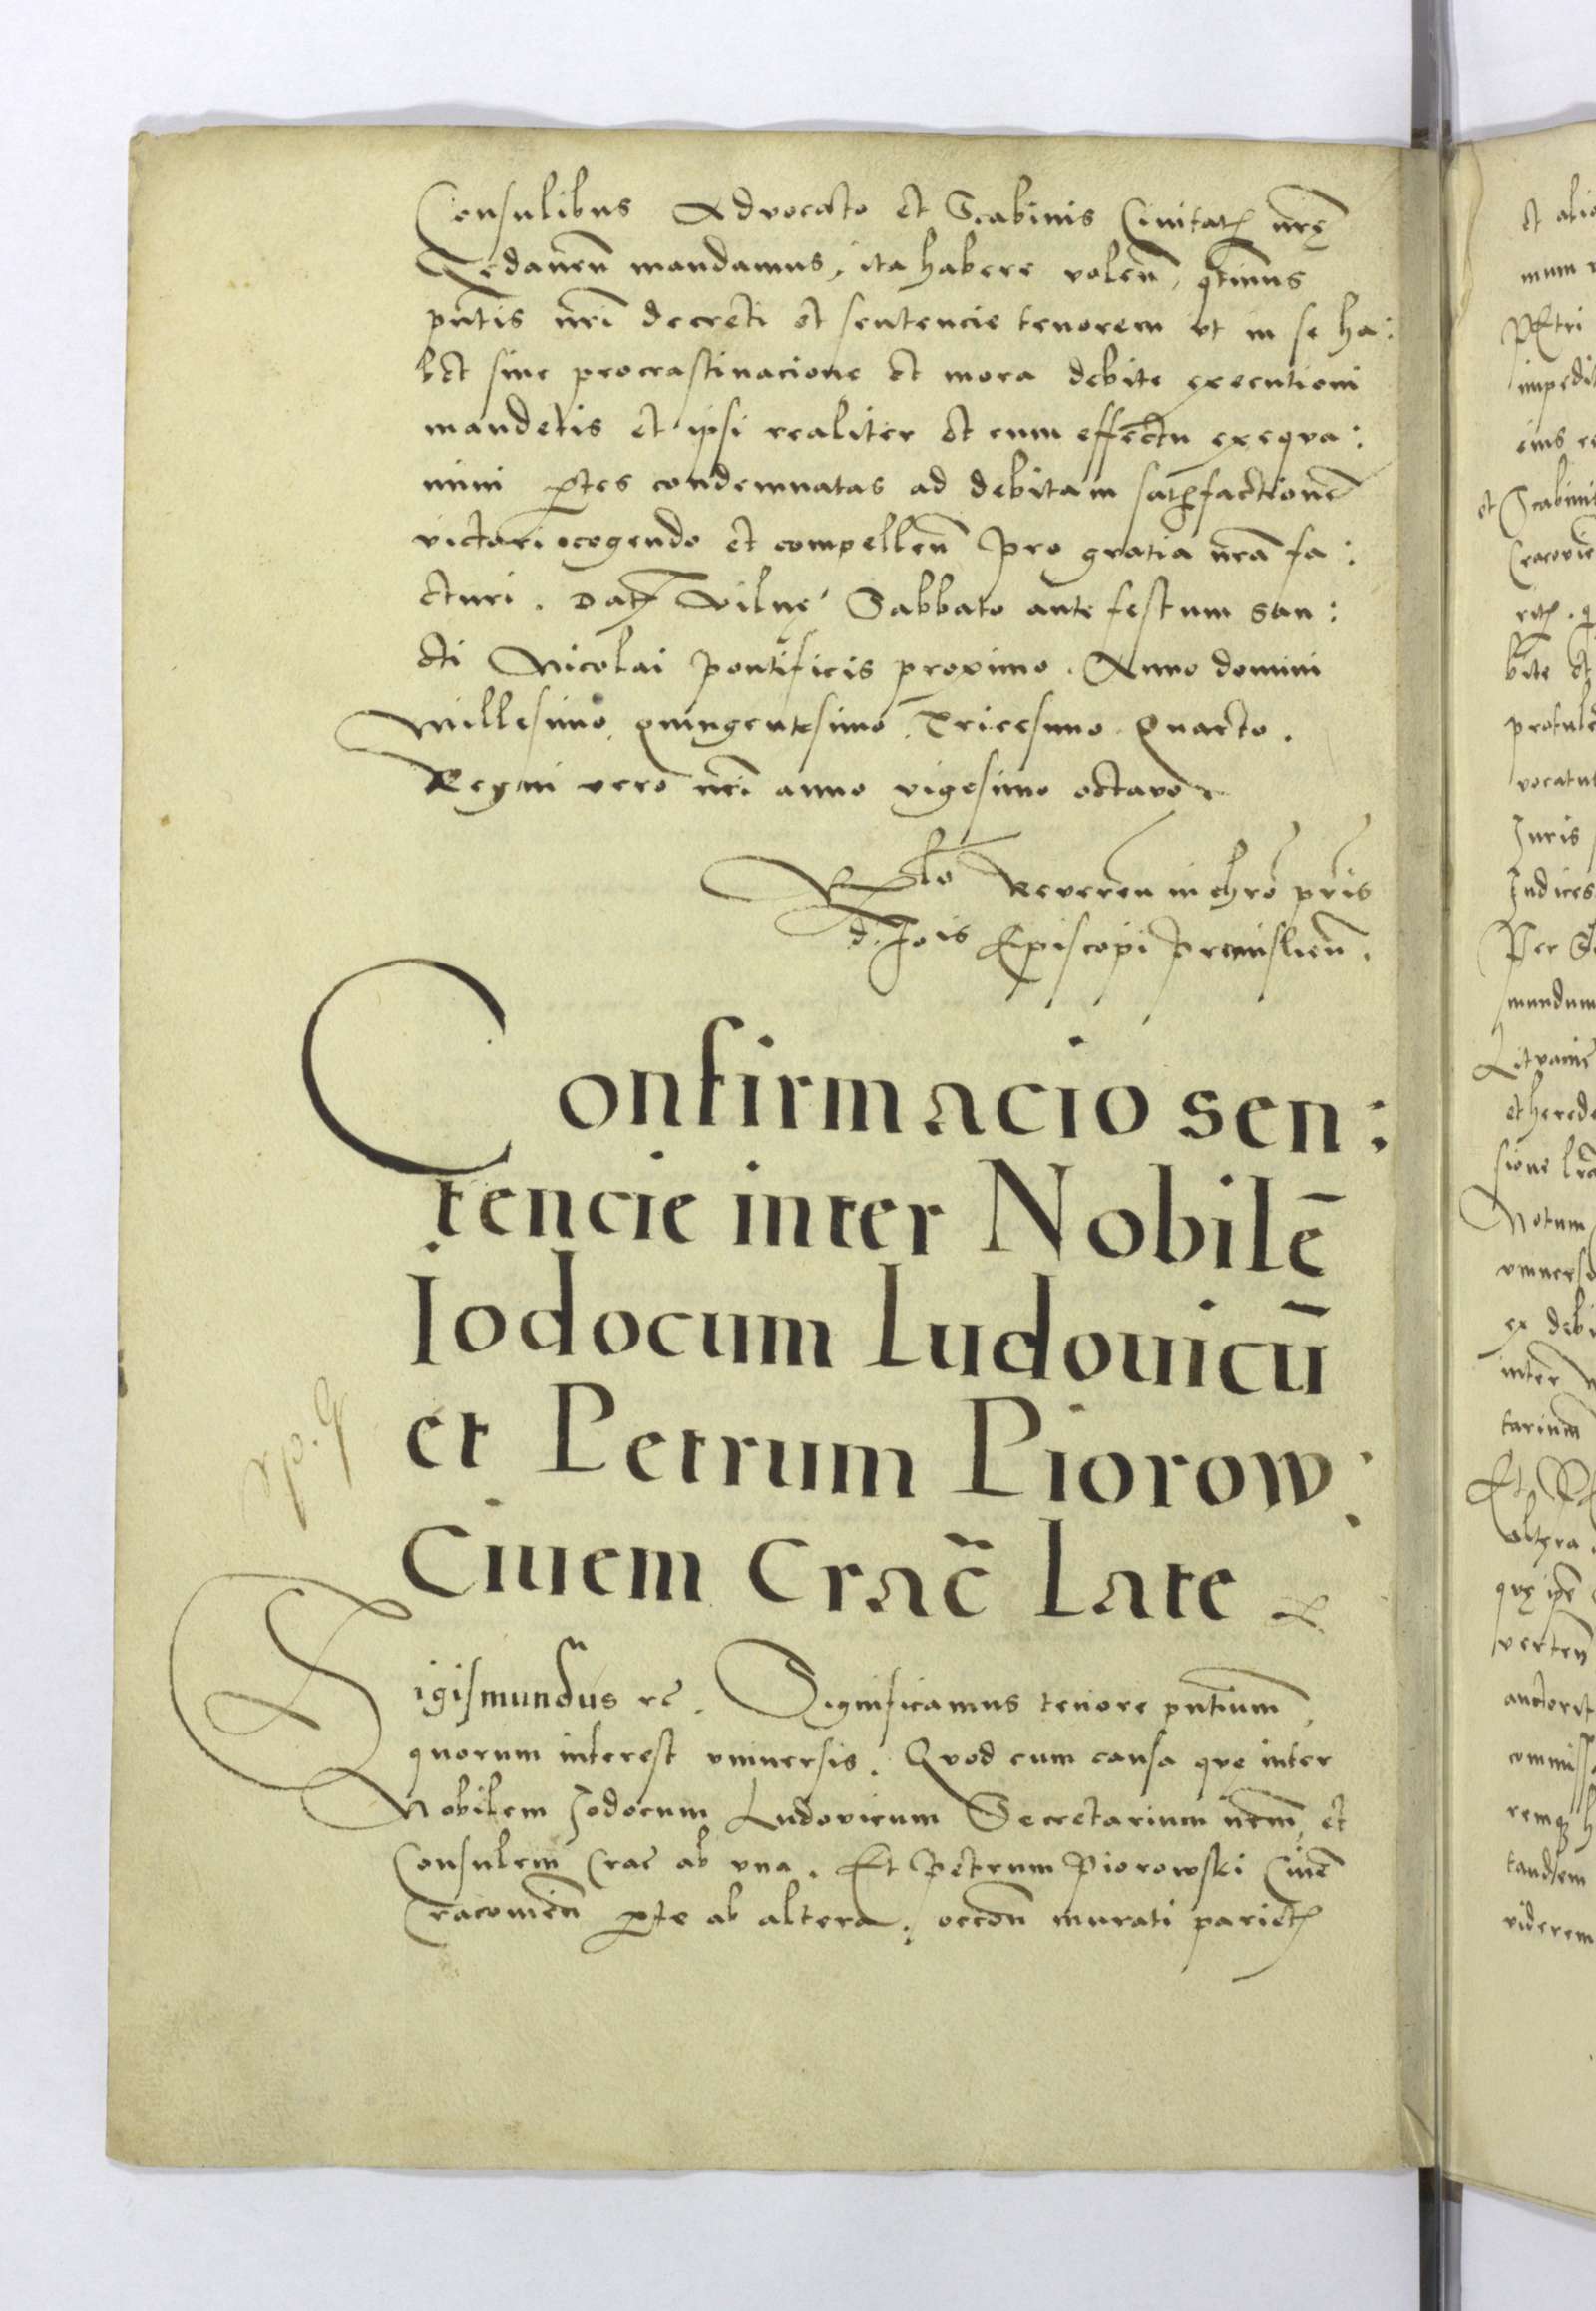 Consulibus Advocato et Scabinis Ciuitat͛ nrę̃
Gedaneñ mandamus, ita habere voleñ, q̃tinus
pñtis nri̅ decreti et sentencie tenorem vt in se ha:
bet sine procrastinacione et mora debite executioni
mandetis et ipsi realiter et cum effectu exequa:
mini ꝑtes condemnatas ad debitam satꝭfactionē
victori cogendo et compelleñ pro gratia nrã fa:
cturi. Datꝭ Vilnę Sabbato ante festum san:
cti Nicolai pontificis proximo. Anno domini
Millesimo, quingentesimo. Tricesimo Quarto.
Regni vero nri̅ anno vigesimo octavo
Rlo Reveren in chro̅ pr̃is
d. Jois Episcopi Premislieñ.
Confirmacio sen:
tencie inter Nobilē
Iodocum Ludouicū
et Petrum Piorow:
Ciuem Crac̃ Late
Sigismundus rc̃. Significamus tenore pñtium,
quorum interest vniuersis. Quod cum causa quę inter
Nobilem Jodocum Ludovicum Secretarium nrm̃, et
Consulem Crac̃ ab vna. Et Petrum Piorowski Ciuē
Cracouieñ ꝑte ab altera, occoñ murati parietꝭ
et alio
mum
Petri
impedit
eius re
et Scabinis
Cracovie
bite et
profule
vocatu
Juris
Judices
Per
mundum
Litvanie
et herede
sione lrã
Notum
vniuerso
ex debi
inter
tarium
Et
altera
quę ipē
verteñ
auctorit
commiss
remqꝫ h
tandem
viderem